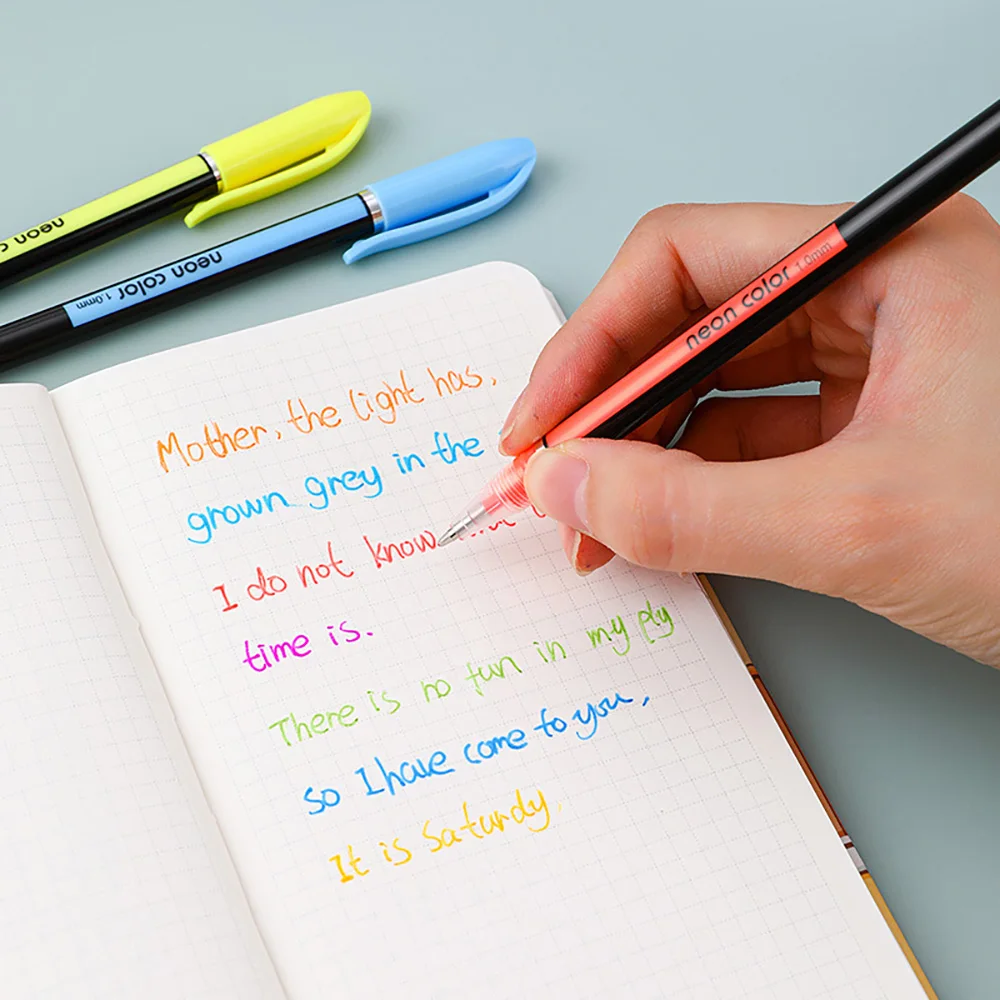 neon color
neon color 1.0mm
neon color 1.0mm
Mother, the light has,
grown grey in the
I do not know
time is.
There is no fun in my ply
so I have come to you,
It is Saturdy,